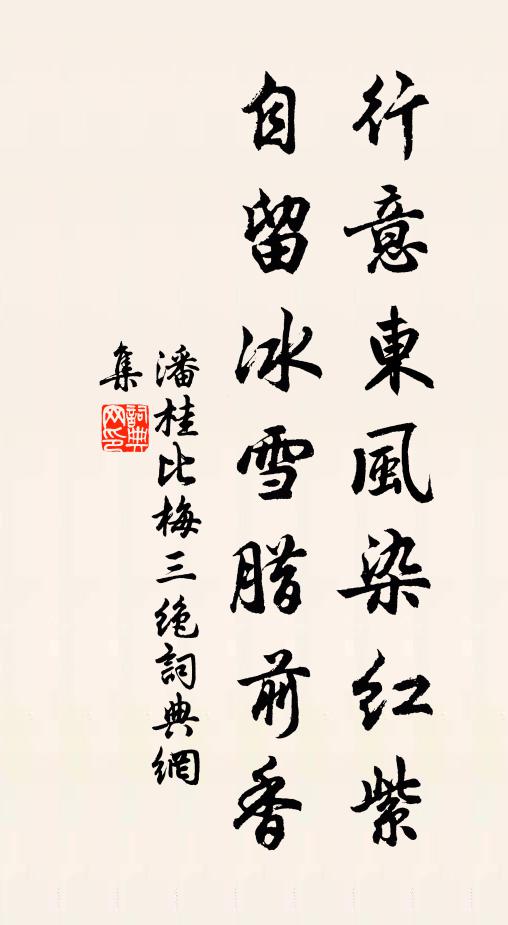 行意東風染红紫
自留冰雪腊前香
潘桂比梅三绝詞典網
集
詞典网印